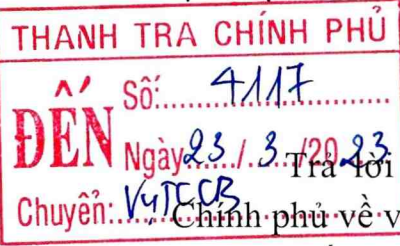 THANH TRA CHÍNH PHỦ
ĐẾN
Số: 4117
Ngày 23 / 3 /2023
Trả lời
Chuyển: Vụ TCCB
Chính phủ về v